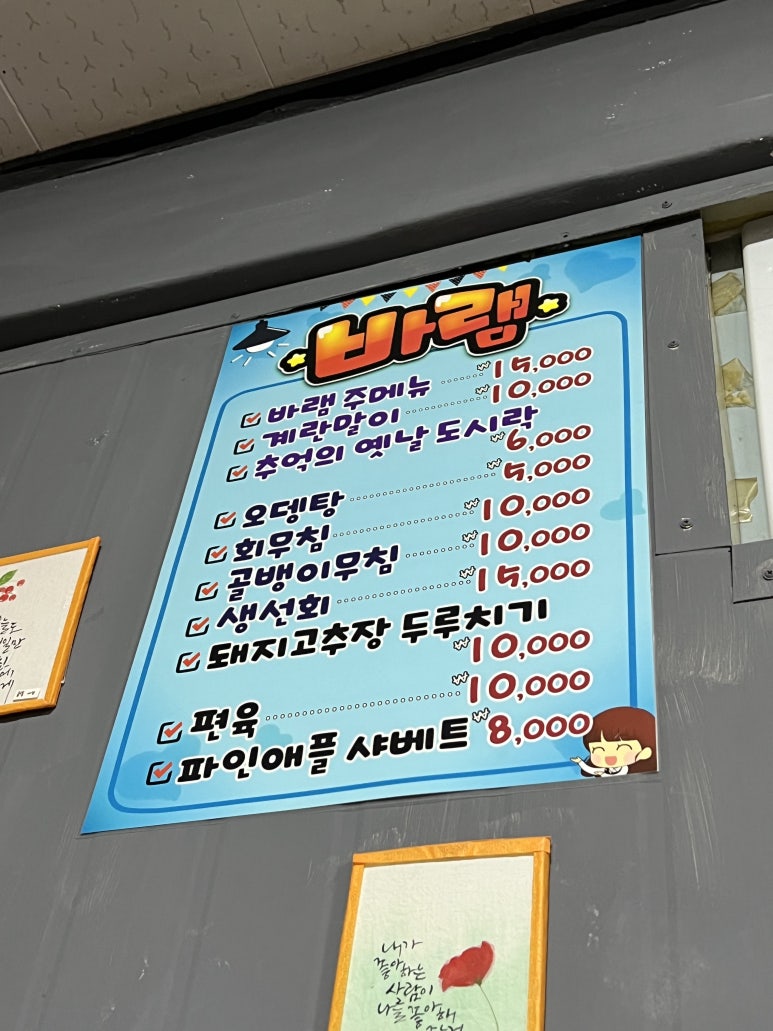 바램
바램 주메뉴 ₩15,000
계란말이 ₩10,000
추억의 옛날 도시락
₩6,000
오뎅탕 ₩5,000
회무침 ₩10,000
골뱅이무침 ₩10,000
생선회 ₩15,000
돼지고추장 두루치기
₩10,000
편육 ₩10,000
파인애플 샤베트 ₩8,000
내가
좋아하는
사람이
나를 좋아해